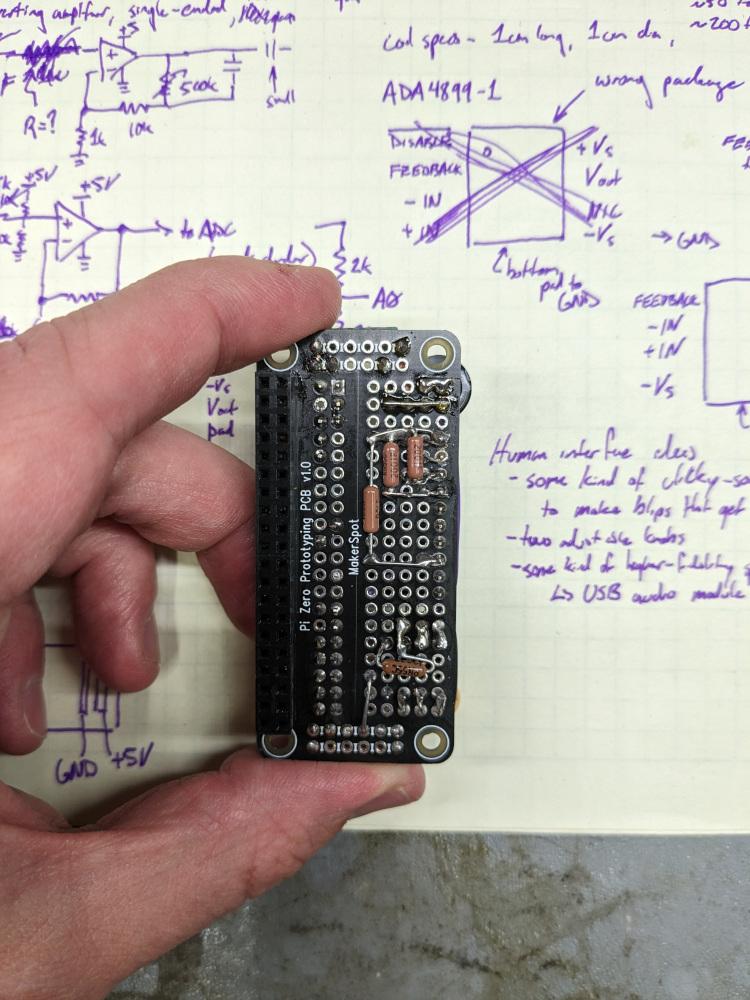 amplifier, single-ended,
+5
500k
small
R=?
1k
10k
~50
~200
coil specs - 1cm long, 1cm dia,
ADA4899-1
wrong package
DISABLE
FEEDBACK
-IN
+IN
+Vs
Vout
N/C
-Vs
→ GND
bottom
pad to
GND
+5V
+5V
to ADC
2k
A0
FEEDBACK
-IN
+IN
-Vs
-Vs
Vout
pad
Pi Zero Prototyping PCB v1.0
MakerSpot
Human interface ideas
- some kind of
to make blips that get
- two adjustable knobs
- some kind of higher-fidelity
↳ USB audio module
GND +5V